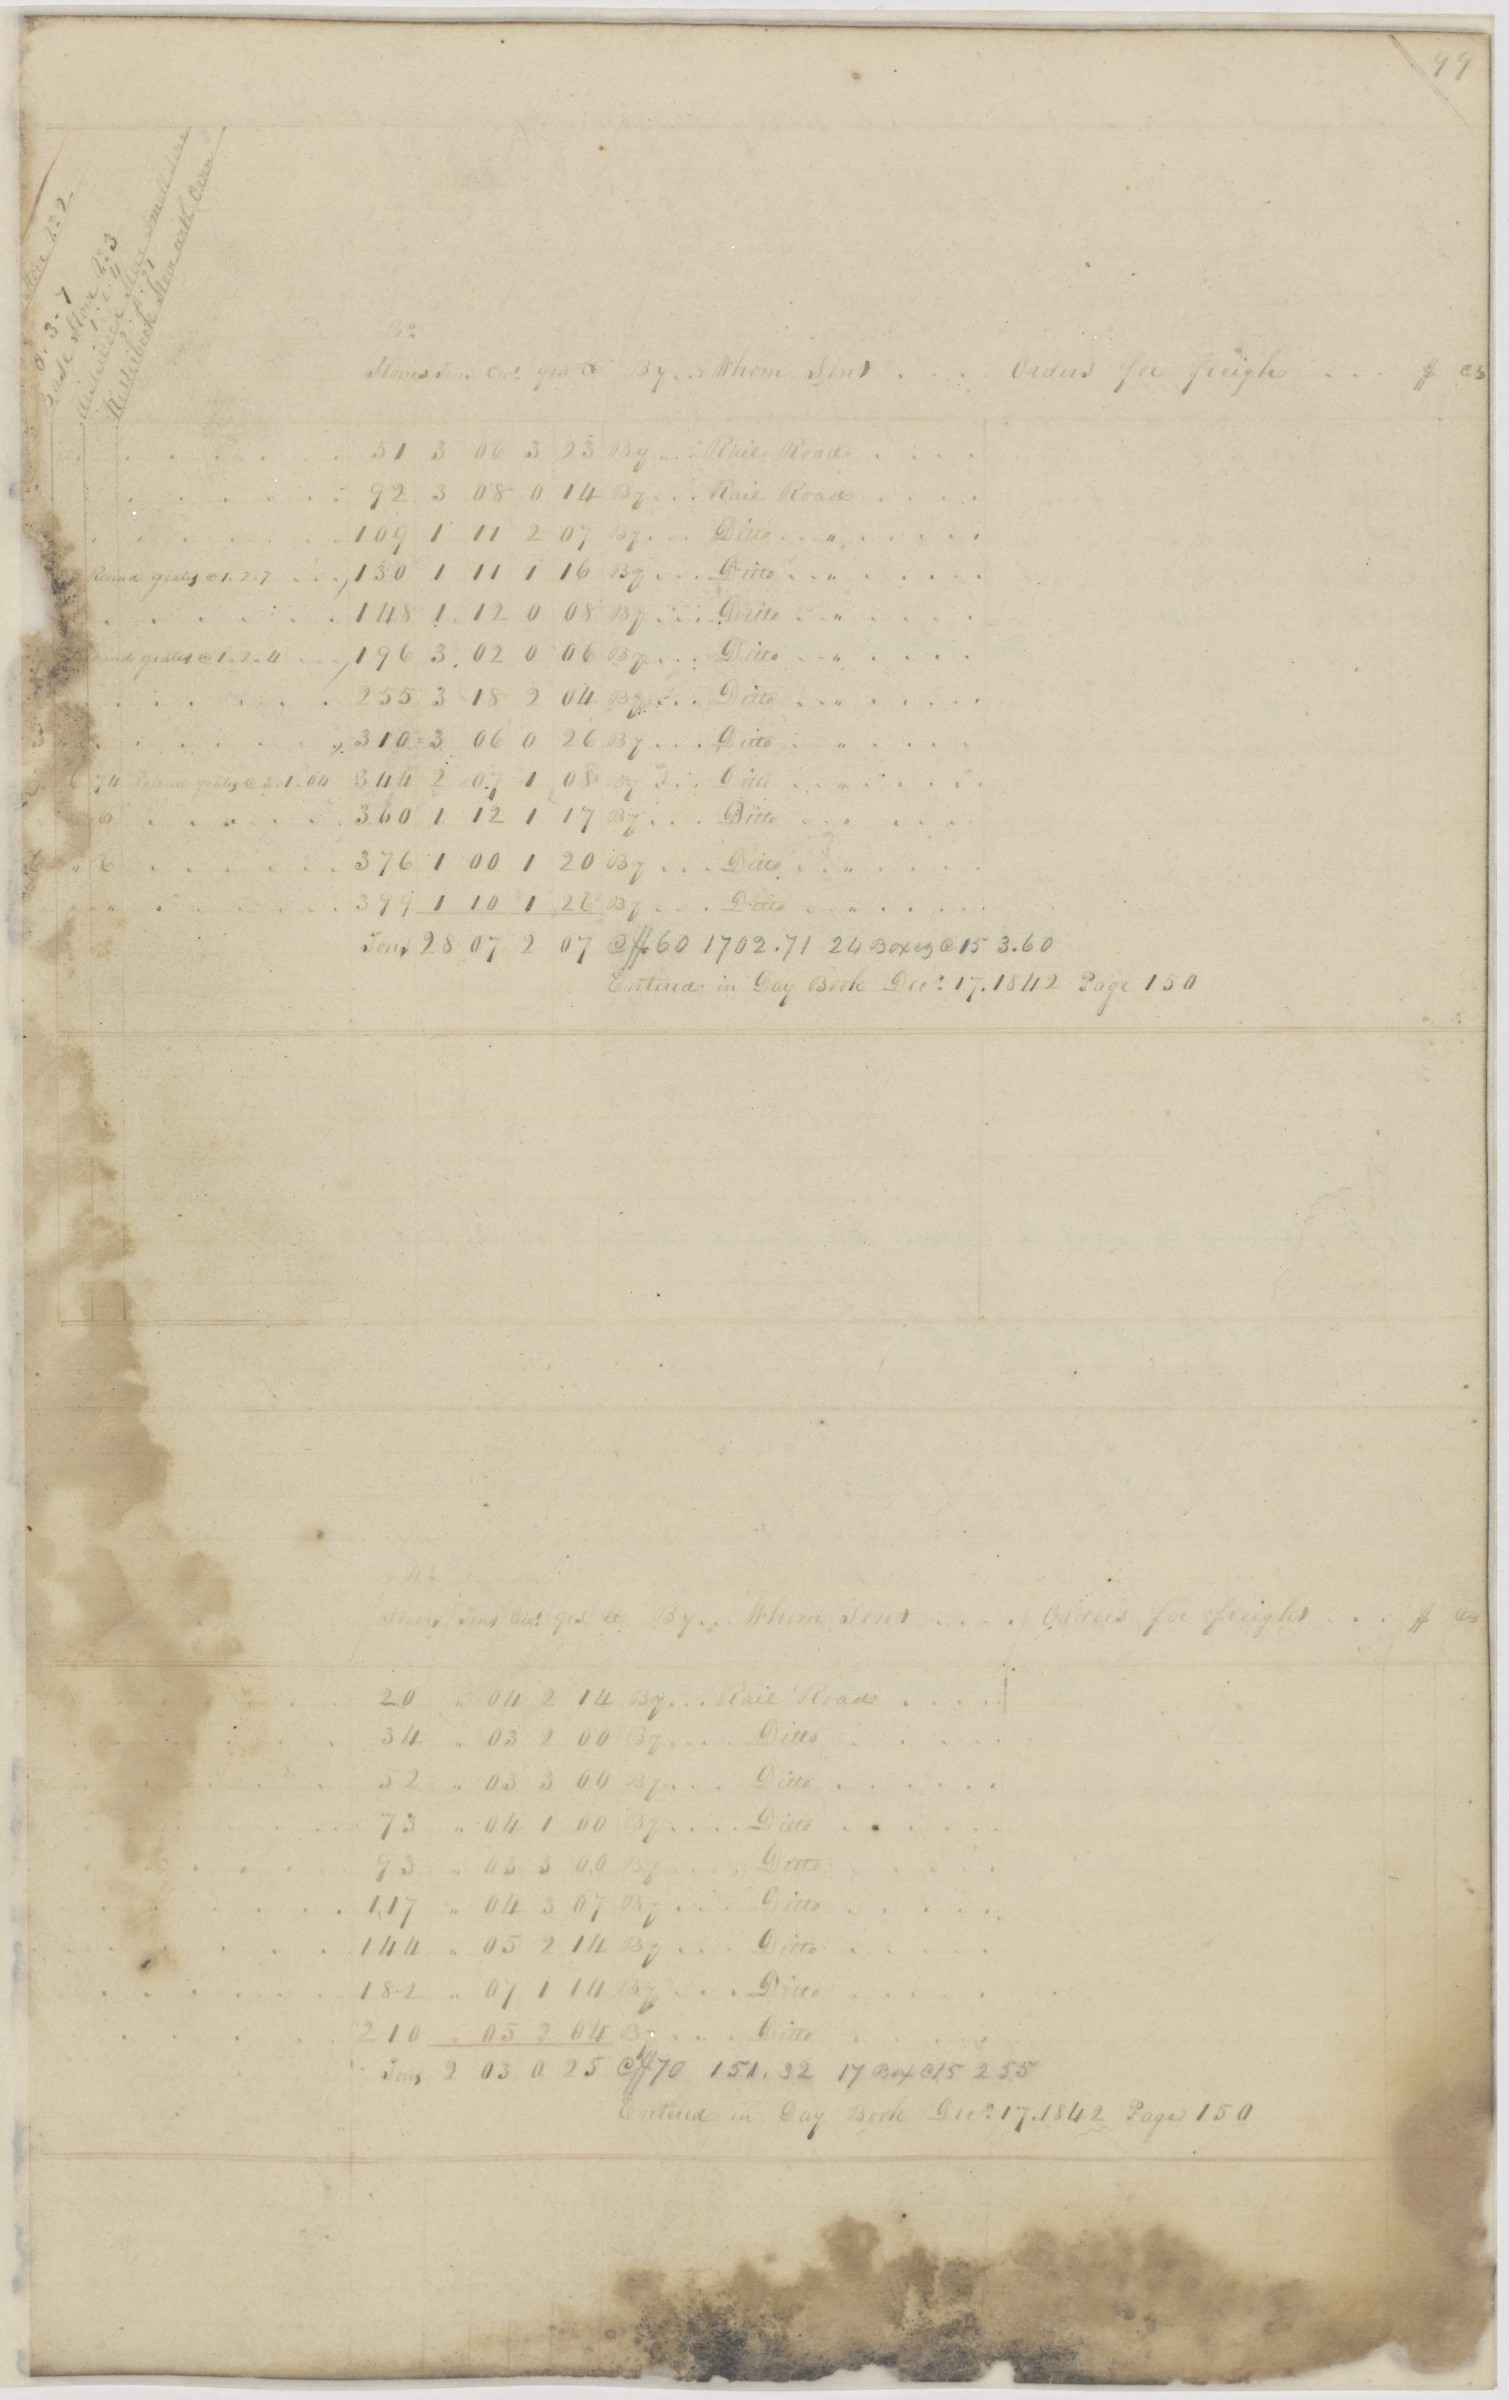 99
Stove No 2
0. 3. 7
Base Stove No 3
1. 2. 11
2. 0. 21
Stove with Oven
No
Stoves Tons Cwt qrs lb By . . Whom Sent . . . . Orders for freigh . . . $ cs
51 3 06 3 23 By . . . Rail Road . . . .
92 3 08 0 14 By . . . Rail Road . . . .
109 1 11 2 07 By . . . Ditto . . " . . . . .
Round grates @ 1. 2. 7 . . . , 130 1 11 1 16 By . . . Ditto . . " . . . . .
148 1 12 0 08 By . . . Ditto . . " . . . .
grates @ 1. 2. 4 . . . , 196 3 02 0 06 By . . . Ditto . . " . . . .
255 3 18 2 04 By . . . Ditto . . " . . . . .
3 310 3 06 0 26 By . . . Ditto . . " . . . .
74 Round grates @ 3. 1. 04 344 2 07 1 08 By . . . Ditto . . " . . . . .
360 1 12 1 17 By . . . Ditto . . " . . . .
6 " 6 . . . . . . 376 1 00 1 20 By . . . Ditto . . " . . . .
399 1 10 1 26 By . . . Ditto . . " . . . . .
Tons 28 07 2 07 @ $60 1702.71 24 Boxes @ 15 3.60
Entered in Day Book Dec. 17. 1842 Page 150
No
Stoves Tons Cwt qrs lb By . . Whom Sent . . . . Orders for freight . . . $ cs
20 " 04 2 14 By . . . Rail Road . . . .
34 " 03 2 00 By . . . Ditto . . . . .
52 " 03 3 00 By . . . Ditto . . . . . .
73 " 04 1 00 By . . . . Ditto . . . . .
93 " 03 3 00 By . . . Ditto . . . . .
117 " 04 3 07 By . . . Ditto . . . . .
144 " 05 2 14 By . . . Ditto . . . . .
182 " 07 1 14 By . . . Ditto . . . . .
210 " 05 2 04 By . . . Ditto . . . . .
Tons 2 03 0 25 @ $70 151.32 17 Box @ 15 2 55
Entered in Day Book Dec. 17. 1842 Page 150